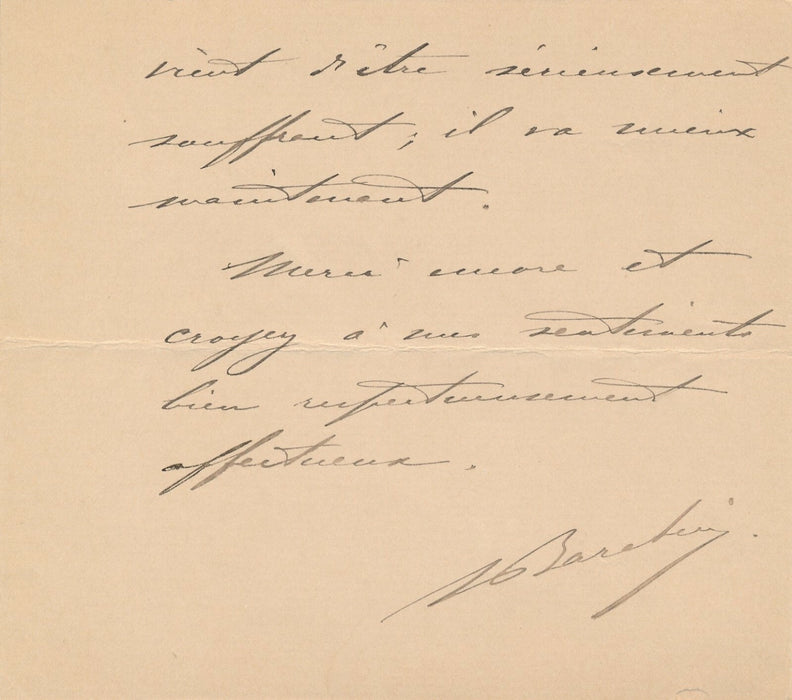 vient d'être sérieusement
souffrant ; il va mieux
maintenant.
Merci encore et
croyez à mes sentiments
bien respectueusement
affectueux.